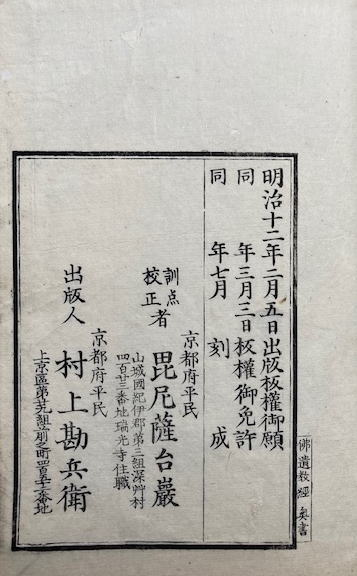 明治十二年二月五日出版板權御願
同　年三月三日板權御免許
同　年七月　刻　成
京都府平民
訓点
校正者　毘尼薩台巖
山城國紀伊郡第三組深艸村
四百廿三番地瑞光寺住職
京都府平民
出版人　村上勘兵衛
上京區第廿九組
佛遺教經